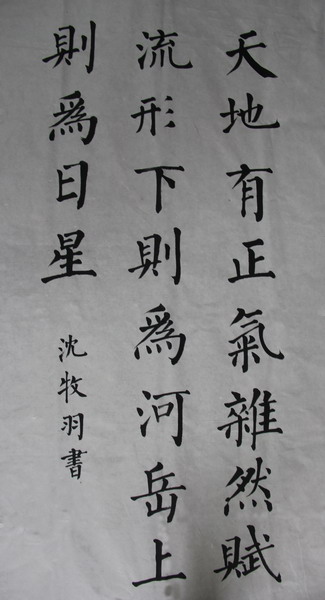 天地有正氣雜然賦
流形下則爲河岳上
則爲日星
沈牧羽書